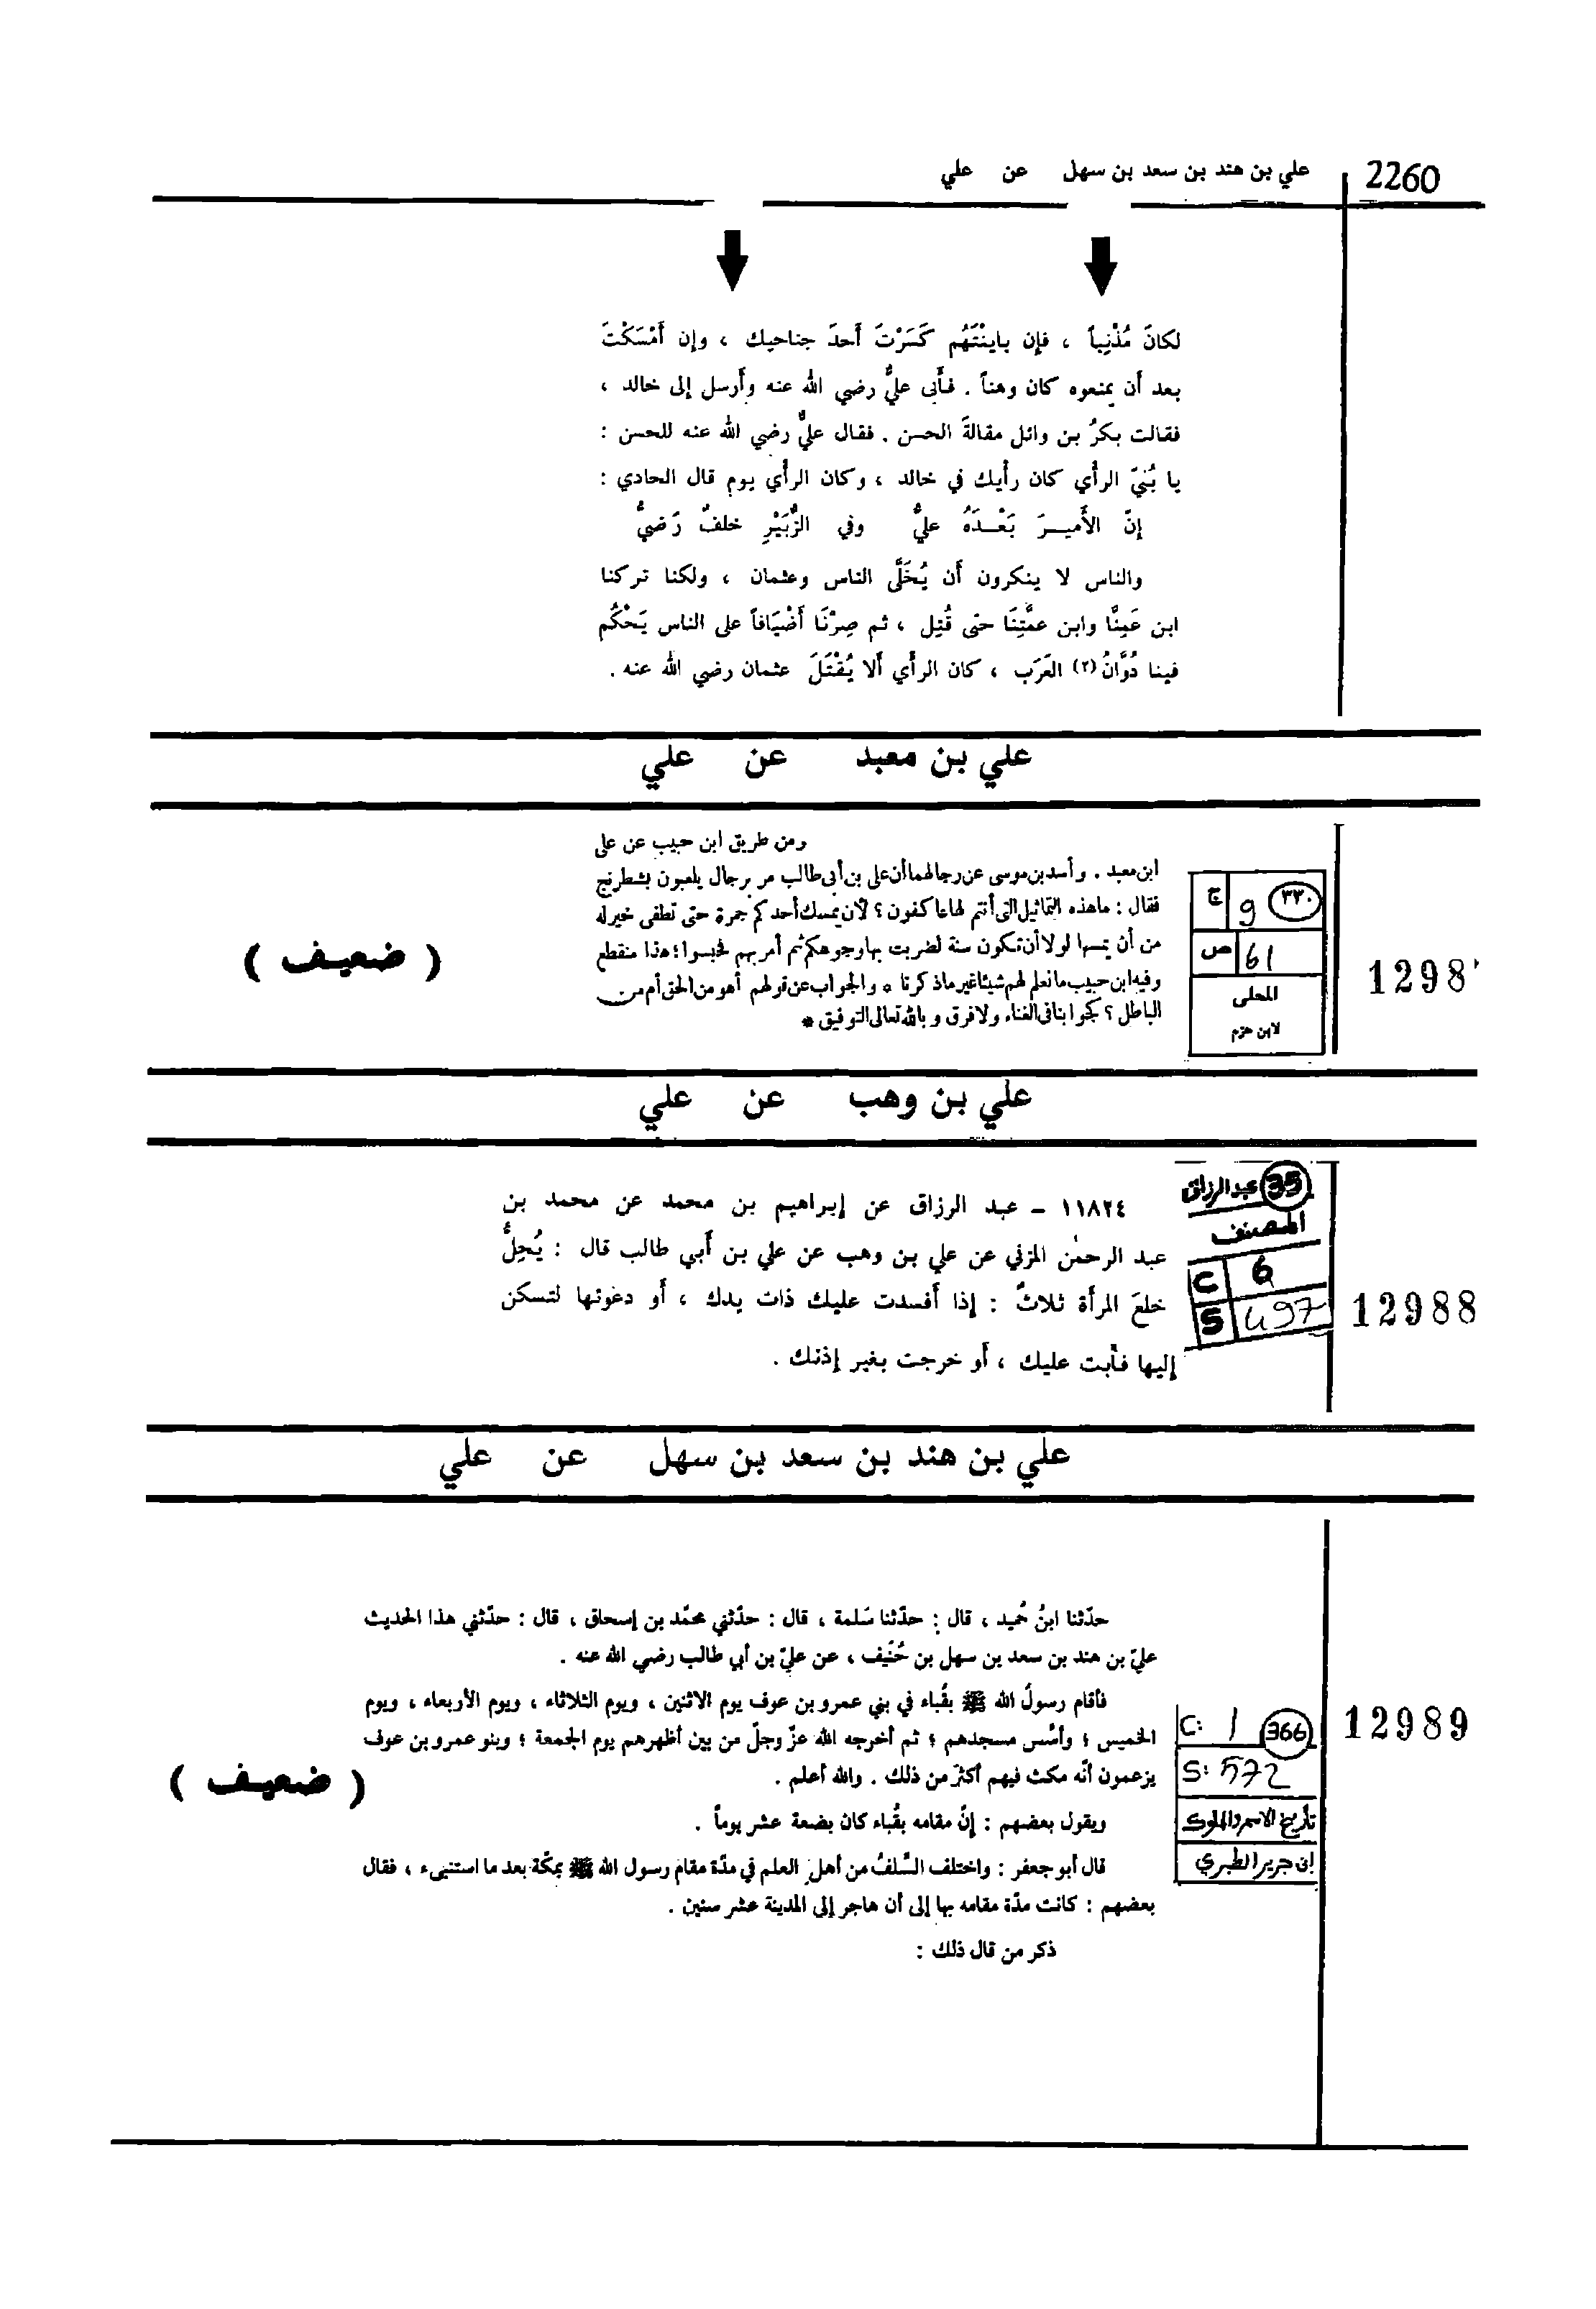 2260
علي بن هند بن سعد بن سهل عن علي
لكانَ مُذْنِباً ، فإن باينْتَهُم كَسَرْتَ أَحدَ جناحيك ، وإن أَمْسَكْتَ
بعد أَن يمنعوه كان وهناً . فأَبى عليٌّ رضي الله عنه وأَرسل إلى خالد ،
فقالت بكرُ بن وائل مقالةَ الحسن . فقال عليٌّ رضي الله عنه للحسن :
يا بُنيّ الرأْي كان رأْيك في خالد ، وكان الرأْي يوم قال الحادي :
إنّ الأَميـرَ بَعْـدَهُ عليٌّ وفي الزُّبَيْرِ خلفٌ رَضيٌّ
والناس لا ينكرون أَن يُخَلَّى الناس وعثمان ، ولكنا تركنا
ابن عَمِنَّا وابن عمَّتِنَا حتى قُتِل ، ثم صِرْنَا أَضْيَافاً على الناس يَحْكُم
فينا ذُوَّانُ (٢) العَرَب ، كان الرأْي أَلا يُقْتَلَ عثمان رضي الله عنه .
علي بن معبد عن علي
ومن طريق ابن حبيب عن على
ابن معبد . وأسد بن موسى عن رجالهما أن على بن أبى طالب مر برجال يلعبون بشطرنج
فقال : ما هذه التماثيل التى أنتم لها عاكفون ؟ لأن يمسك أحدكم جمرة حتى تطفى خير له
من أن يمسها لولا أن تكون سنة لضربت بها وجوهكم ثم أمر بهم فحبسوا ؛ هذا منقطع
وفيه ابن حبيب ما نعلم لهم شيئا غير ما ذكرنا * والجواب عن قولهم أهو من الحق أم من
الباطل ؟ كجوابنا فى الغناء ولا فرق وبالله تعالى التوفيق *
٣٣٠
ج 9
ص 61
المحلى
لابن حزم
1298
( ضعيف )
علي بن وهب عن علي
١١٨٢٤ - عبد الرزاق عن إبراهيم بن محمد عن محمد بن
عبد الرحمٰن المزني عن علي بن وهب عن علي بن أَبي طالب قال : يُحِلُّ
خلعَ المرأة ثلاثٌ : إذا أَفسدت عليك ذات يدك ، أَو دعوتها لتسكن
إليها فأَبت عليك ، أَو خرجت بغير إذنك .
35 عبد الرزاق
المصنف
C 6
S 497
12988
علي بن هند بن سعد بن سهل عن علي
حدّثنا ابنُ حُميد ، قال : حدّثنا سَلمة ، قال : حدّثني محمّد بن إسحاق ، قال : حدّثني هذا الحديث
عليّ بن هند بن سعد بن سهل بن حُنَيف ، عن عليّ بن أبي طالب رضي الله عنه .
فأقام رسولُ الله ﷺ بقُباء في بني عمرو بن عوف يوم الاثنين ، ويوم الثلاثاء ، ويوم الأربعاء ، ويوم
الخميس ؛ وأسّس مسجدهم ؛ ثم أخرجه الله عزّ وجلّ من بين أظهرهم يوم الجمعة ؛ وبنو عمرو بن عوف
يزعمون أنّه مكث فيهم أكثر من ذلك . والله أعلم .
ويقول بعضهم : إنّ مقامه بقُباء كان بضعة عشر يوماً .
قال أبو جعفر : واختلف السَّلفُ من أهل العلم في مدّة مقام رسول الله ﷺ بمكّة بعد ما استنبىء ، فقال
بعضهم : كانت مدّة مقامه بها إلى أن هاجر إلى المدينة عشر سنين .
ذكر من قال ذلك :
366
C: 1
S: 572
تأريخ الامم والملوك
ابن جرير الطبري
12989
( ضعيف )